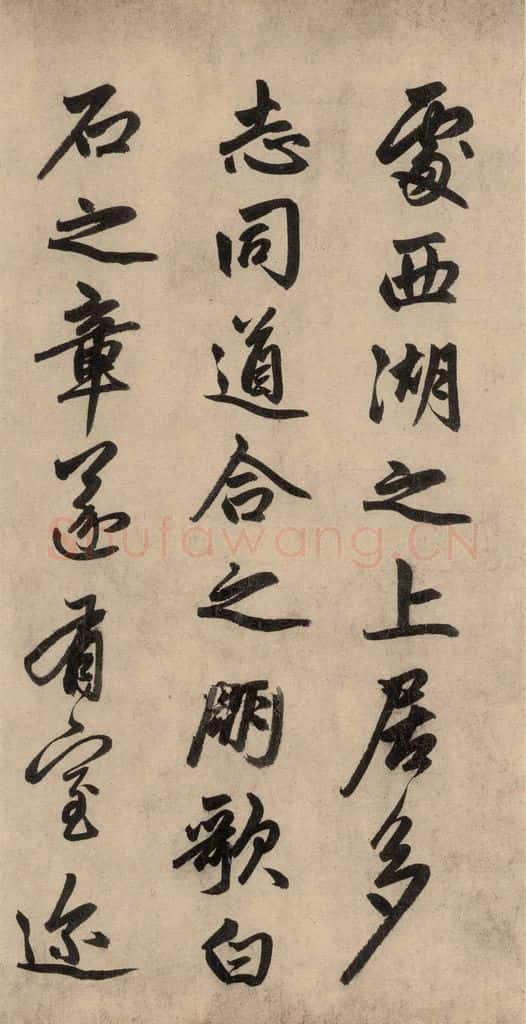 處西湖之上居多
志同道合之朋歌白
石之章遂有室迩
Shufawang.CN